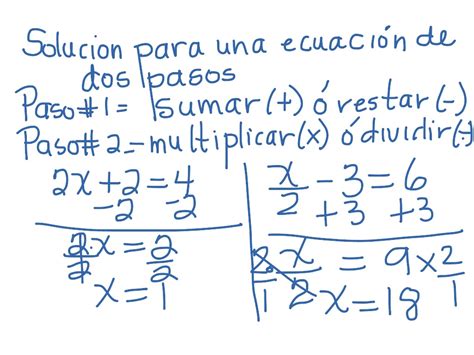 Solucion para una ecuación de
dos pasos
Paso#1= sumar(+) ó restar(-)
Paso#2-multiplicar(x) ó dividir(÷)
2x+2=4
-2 -2
2x=2
2 2
x=1
x/2 -3=6
+3 +3
2/1 · x/2 = 9x2/1
x=18